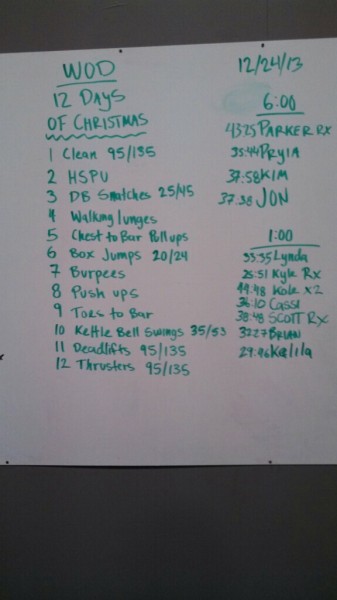 WOD
12 Days
OF CHRISTMAS
1 Clean 95/135
2 HSPU
3 DB Snatches 25/45
4 Walking lunges
5 Chest to Bar Pull ups
6 Box Jumps 20/24
7 Burpees
8 Push ups
9 Toes to Bar
10 Kettle Bell Swings 35/53
11 Deadlifts 95/135
12 Thrusters 95/135
12/24/13
6:00
43:25 PARKER RX
35:44 PRYIA
37:58 KIM
37:38 JON
1:00
33:35 Lynda
25:51 Kyle Rx
49:48 Kole x2
36:10 Cassi
38:48 SCOTT Rx
32:27 BRIAN
29:46 Kalila